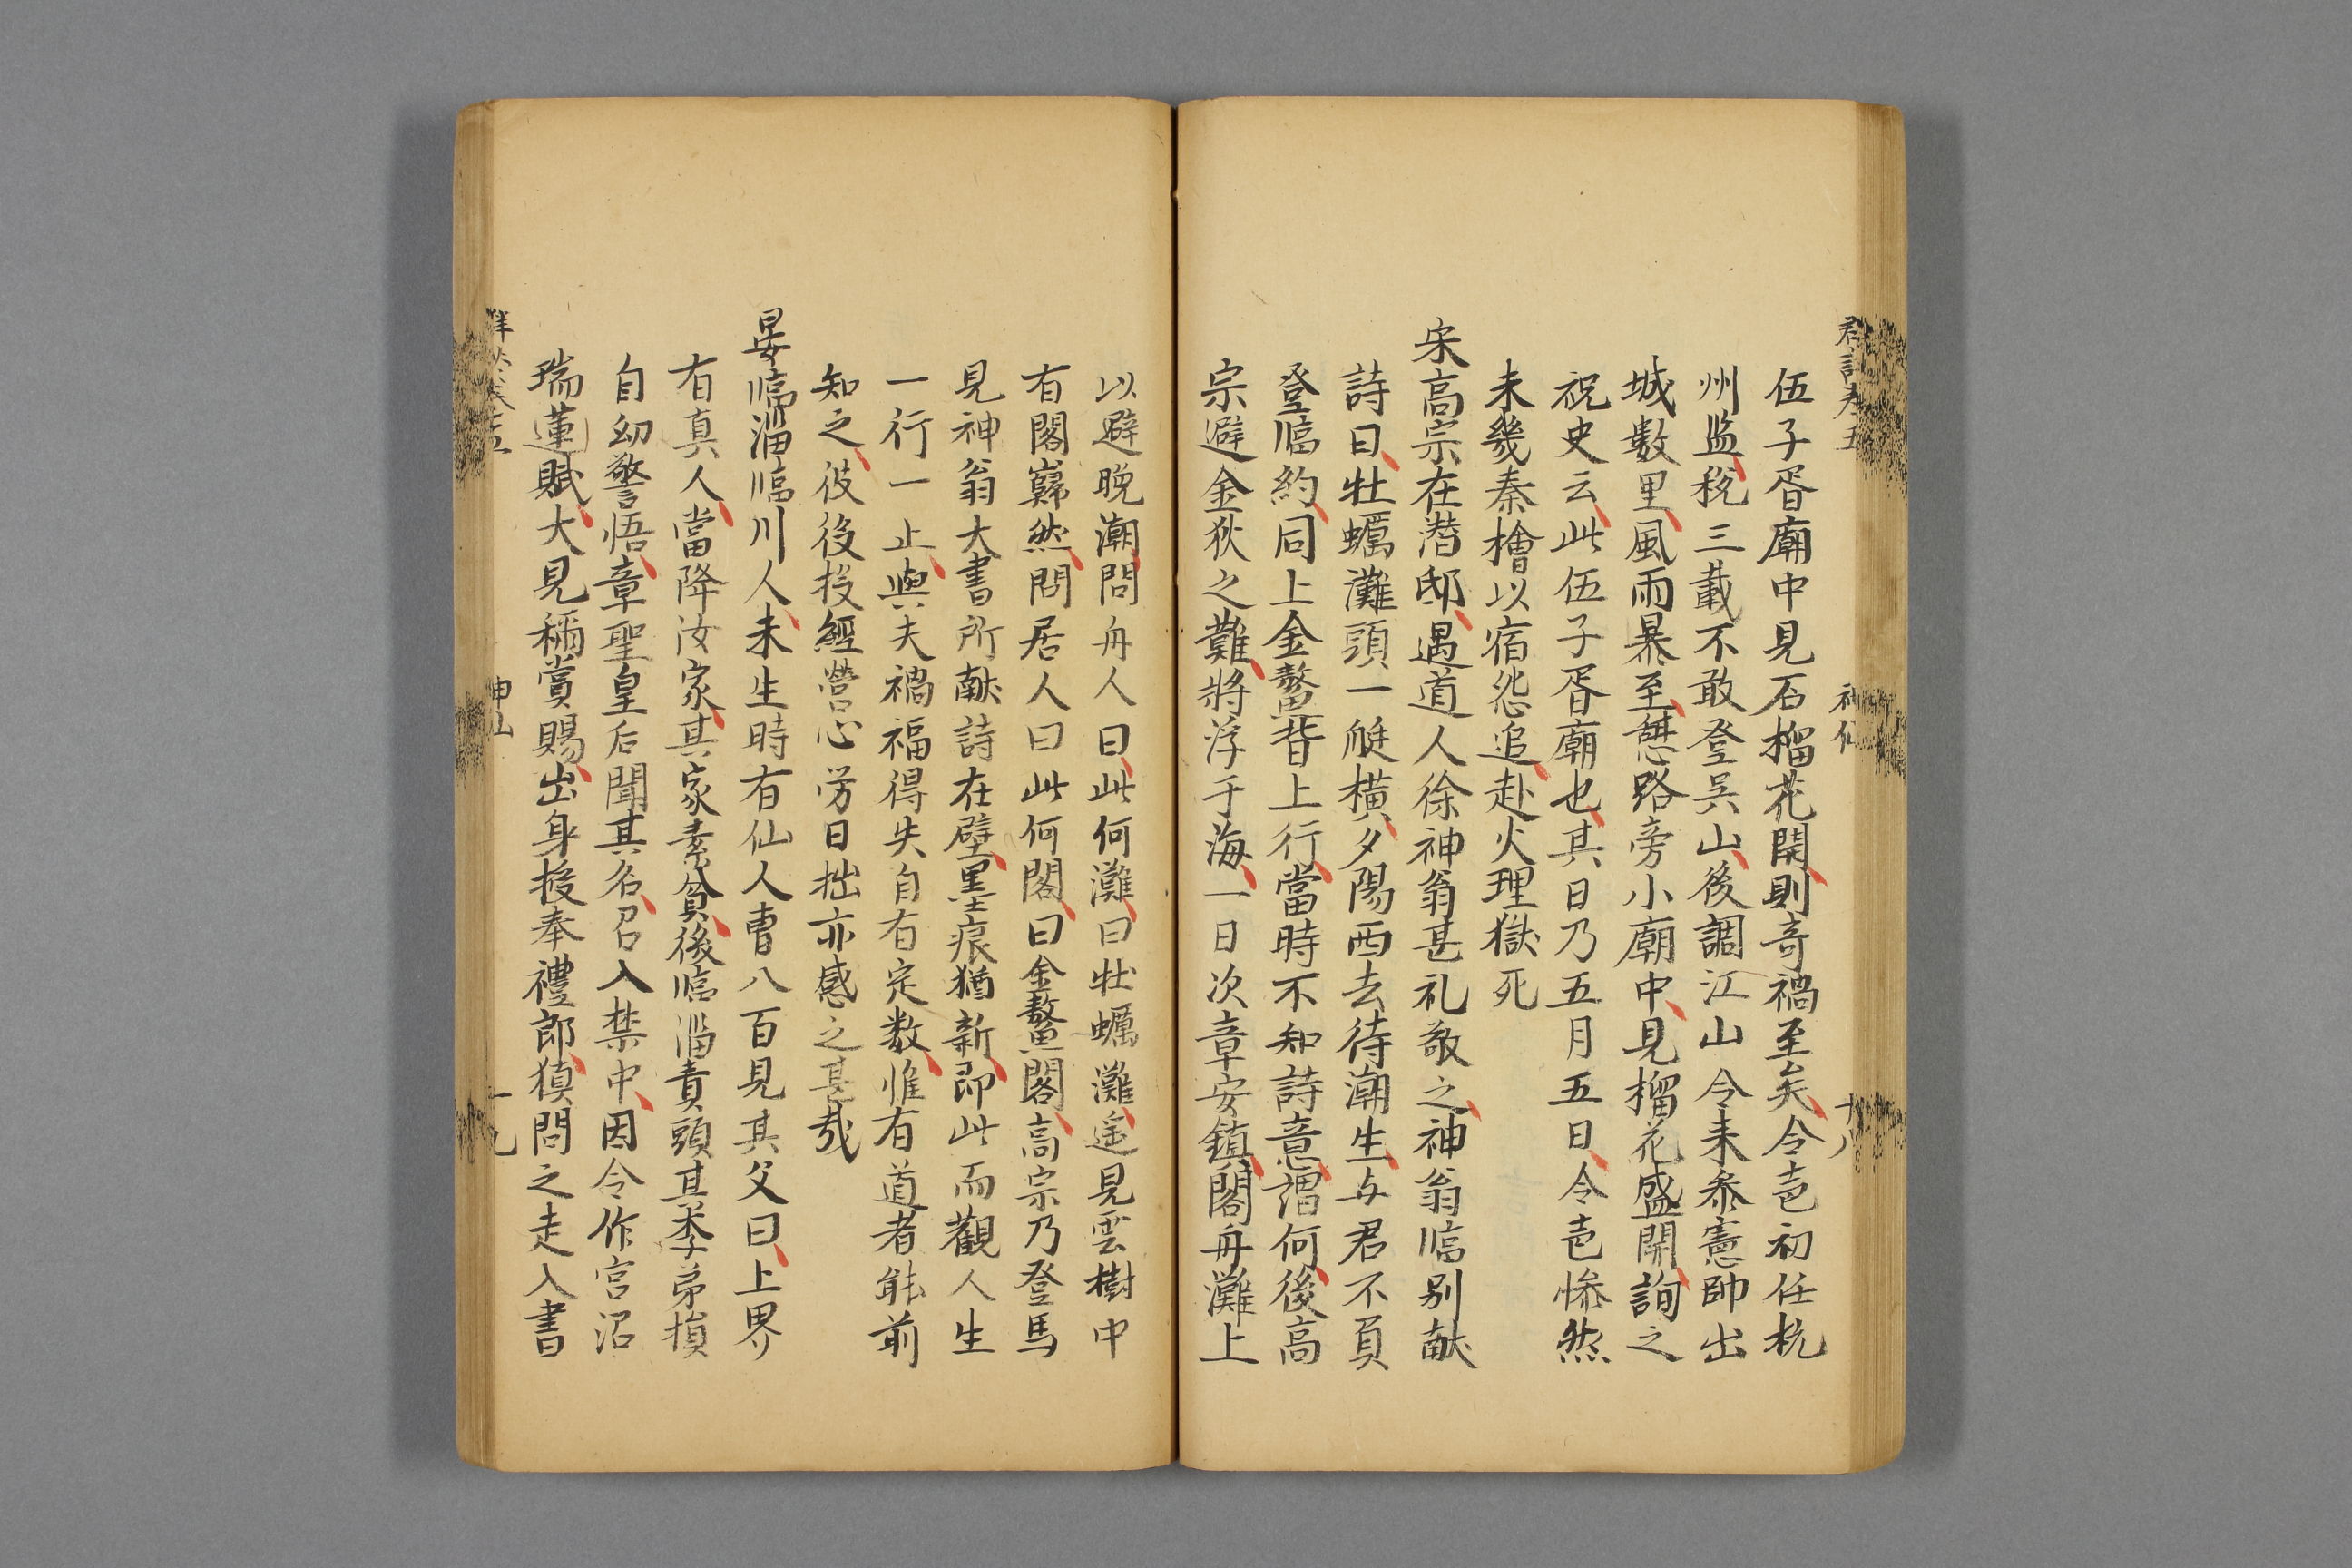 伍子胥廟中見石榴花開則奇禍至矣令邑初任杭
州监税三載不敢登吳山後調江山令未叅憲帥出
城數里風雨暴至憇路旁小廟中見榴花盛開詢之
祝史云此伍子胥廟也其日乃五月五日令邑惨然
未幾秦檜以宿怨追赴大理獄死
宋高宗在潜邸遇道人徐神翁甚礼敬之神翁臨别献
詩曰牡蠣灘頭一艇横夕陽西去待潮生与君不負
登臨約同上金鰲背上行當時不知詩意謂何後高
宗避金狄之難將浮于海一日次章安鎮閣舟灘上
以避晚潮問舟人曰此何灘曰牡蠣灘遥見雲樹中
有閣巋然問居人曰此何閣曰金鰲閣高宗乃登馬
見神翁大書所献詩在壁墨痕猶新即此而觀人生
一行一止與夫禍福得失自有定数惟有道者能前
知之彼役役經營心勞日拙亦感之甚哉
晏臨淄臨川人未生時有仙人曹八百見其父曰上界
有真人當降汝家其家素貧後臨淄貴顕其季弟損
自幼警悟章聖皇后聞其名召入禁中因令作宫沼
瑞蓮賦大見稱賞賜出身授奉禮郎損問之走入書
神仙
十八